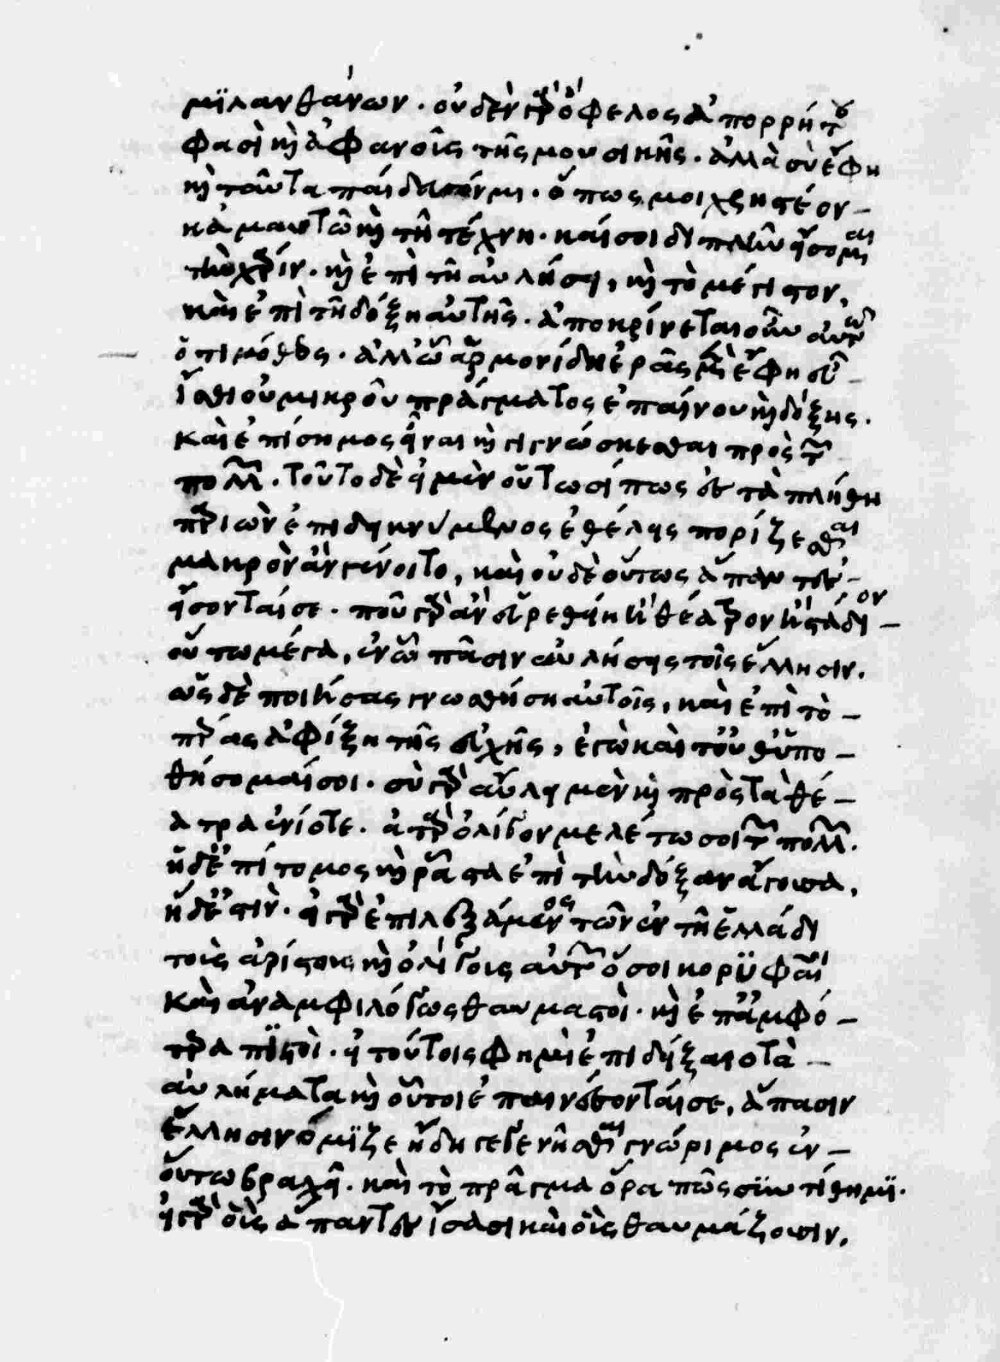 μὴ λανθάνων. οὐδὲν γὰρ ὄφελος ἀπορρήτου
φασὶ καὶ ἀφανοῦς τῆς μουσικῆς. ἀλλὰ σὺ ἔφη
καὶ ταῦτα παίδευσόν με. ὅπως μοι χρηστέον
κἀμαυτῶ καὶ τῆ τέχνη. καί σοι διπλῆν εἴσομαι
τὴν χάριν. καὶ ἐπὶ τῆ αὐλήσει, καὶ τὸ μέγιστον,
καὶ ἐπὶ τῆ δόξη αὐτῆς. ἀποκρίνεται οὖν αὐτῶ
ὁ τιμόθεος. ἀλλ' ὦ ἁρμονίδη ἐρᾶς μὲν ἔφη εὖ
ἴσθι οὐ μικροῦ πράγματος ἐπαίνου καὶ δόξης.
καὶ ἐπίσημος εἶναι καὶ γιγνώσκεσθαι πρὸς τῶν
πολλῶν. τοῦτο δὲ εἰ μὲν οὑτωσί πως ἐς τὰ πλήθη
παριὼν ἐπιδεικνύμενος ἐθέλεις πορίζεσθαι
μακρὸν ἂν γένοιτο, καὶ οὐδὲ οὕτως ἅπαντες
εἴσονταί σε. ποῦ γὰρ ἂν εὑρεθείη ἢ θέατρον ἢ στάδιον
οὕτω μέγα, ἐν ὧ πᾶσιν αὐλήσεις τοῖς ἕλλησιν.
ὡς δὲ ποιήσας γνωσθήση αὐτοῖς, καὶ ἐπὶ τὸ
πέρας ἀφίξη τῆς εὐχῆς, ἐγὼ καὶ τοῦθ' ὑπο
θήσομαί σοι. σὺ γὰρ αὔλει μὲν καὶ πρὸς τὰ θέ
ατρα ἐνίοτε. ἀτὰρ ὀλίγον μελέτω σοι τῶν πολλῶν.
ἡ δ' ἐπίτομος καὶ ῥᾶστα ἐπὶ τὴν δόξαν ἄγουσα,
ἥδε ἐστίν. εἰ γὰρ ἐπιλεξάμενος τῶν ἐν τῆ ἑλλάδι
τοὺς ἀρίστους καὶ ὀλίγους αὐτῶν ὅσοι κορυφαῖοι
καὶ ἀναμφιλόγως θαυμαστοὶ. καὶ ἐπ' ἀμφό
τερα πιστοὶ. εἰ τούτοις φημὶ ἐπιδείξαιο τὰ
αὐλήματα καὶ οὗτοι ἐπαινέσονταί σε, ἅπασιν
ἕλλησιν νόμιζε ἤδη γεγενῆσθαι γνώριμος ἐν
οὕτω βραχεῖ. καὶ τὸ πρᾶγμα ὅρα πῶς συντίθημι.
εἰ γὰρ οὓς ἅπαντες ἴσασι καὶ οὓς θαυμάζουσιν,